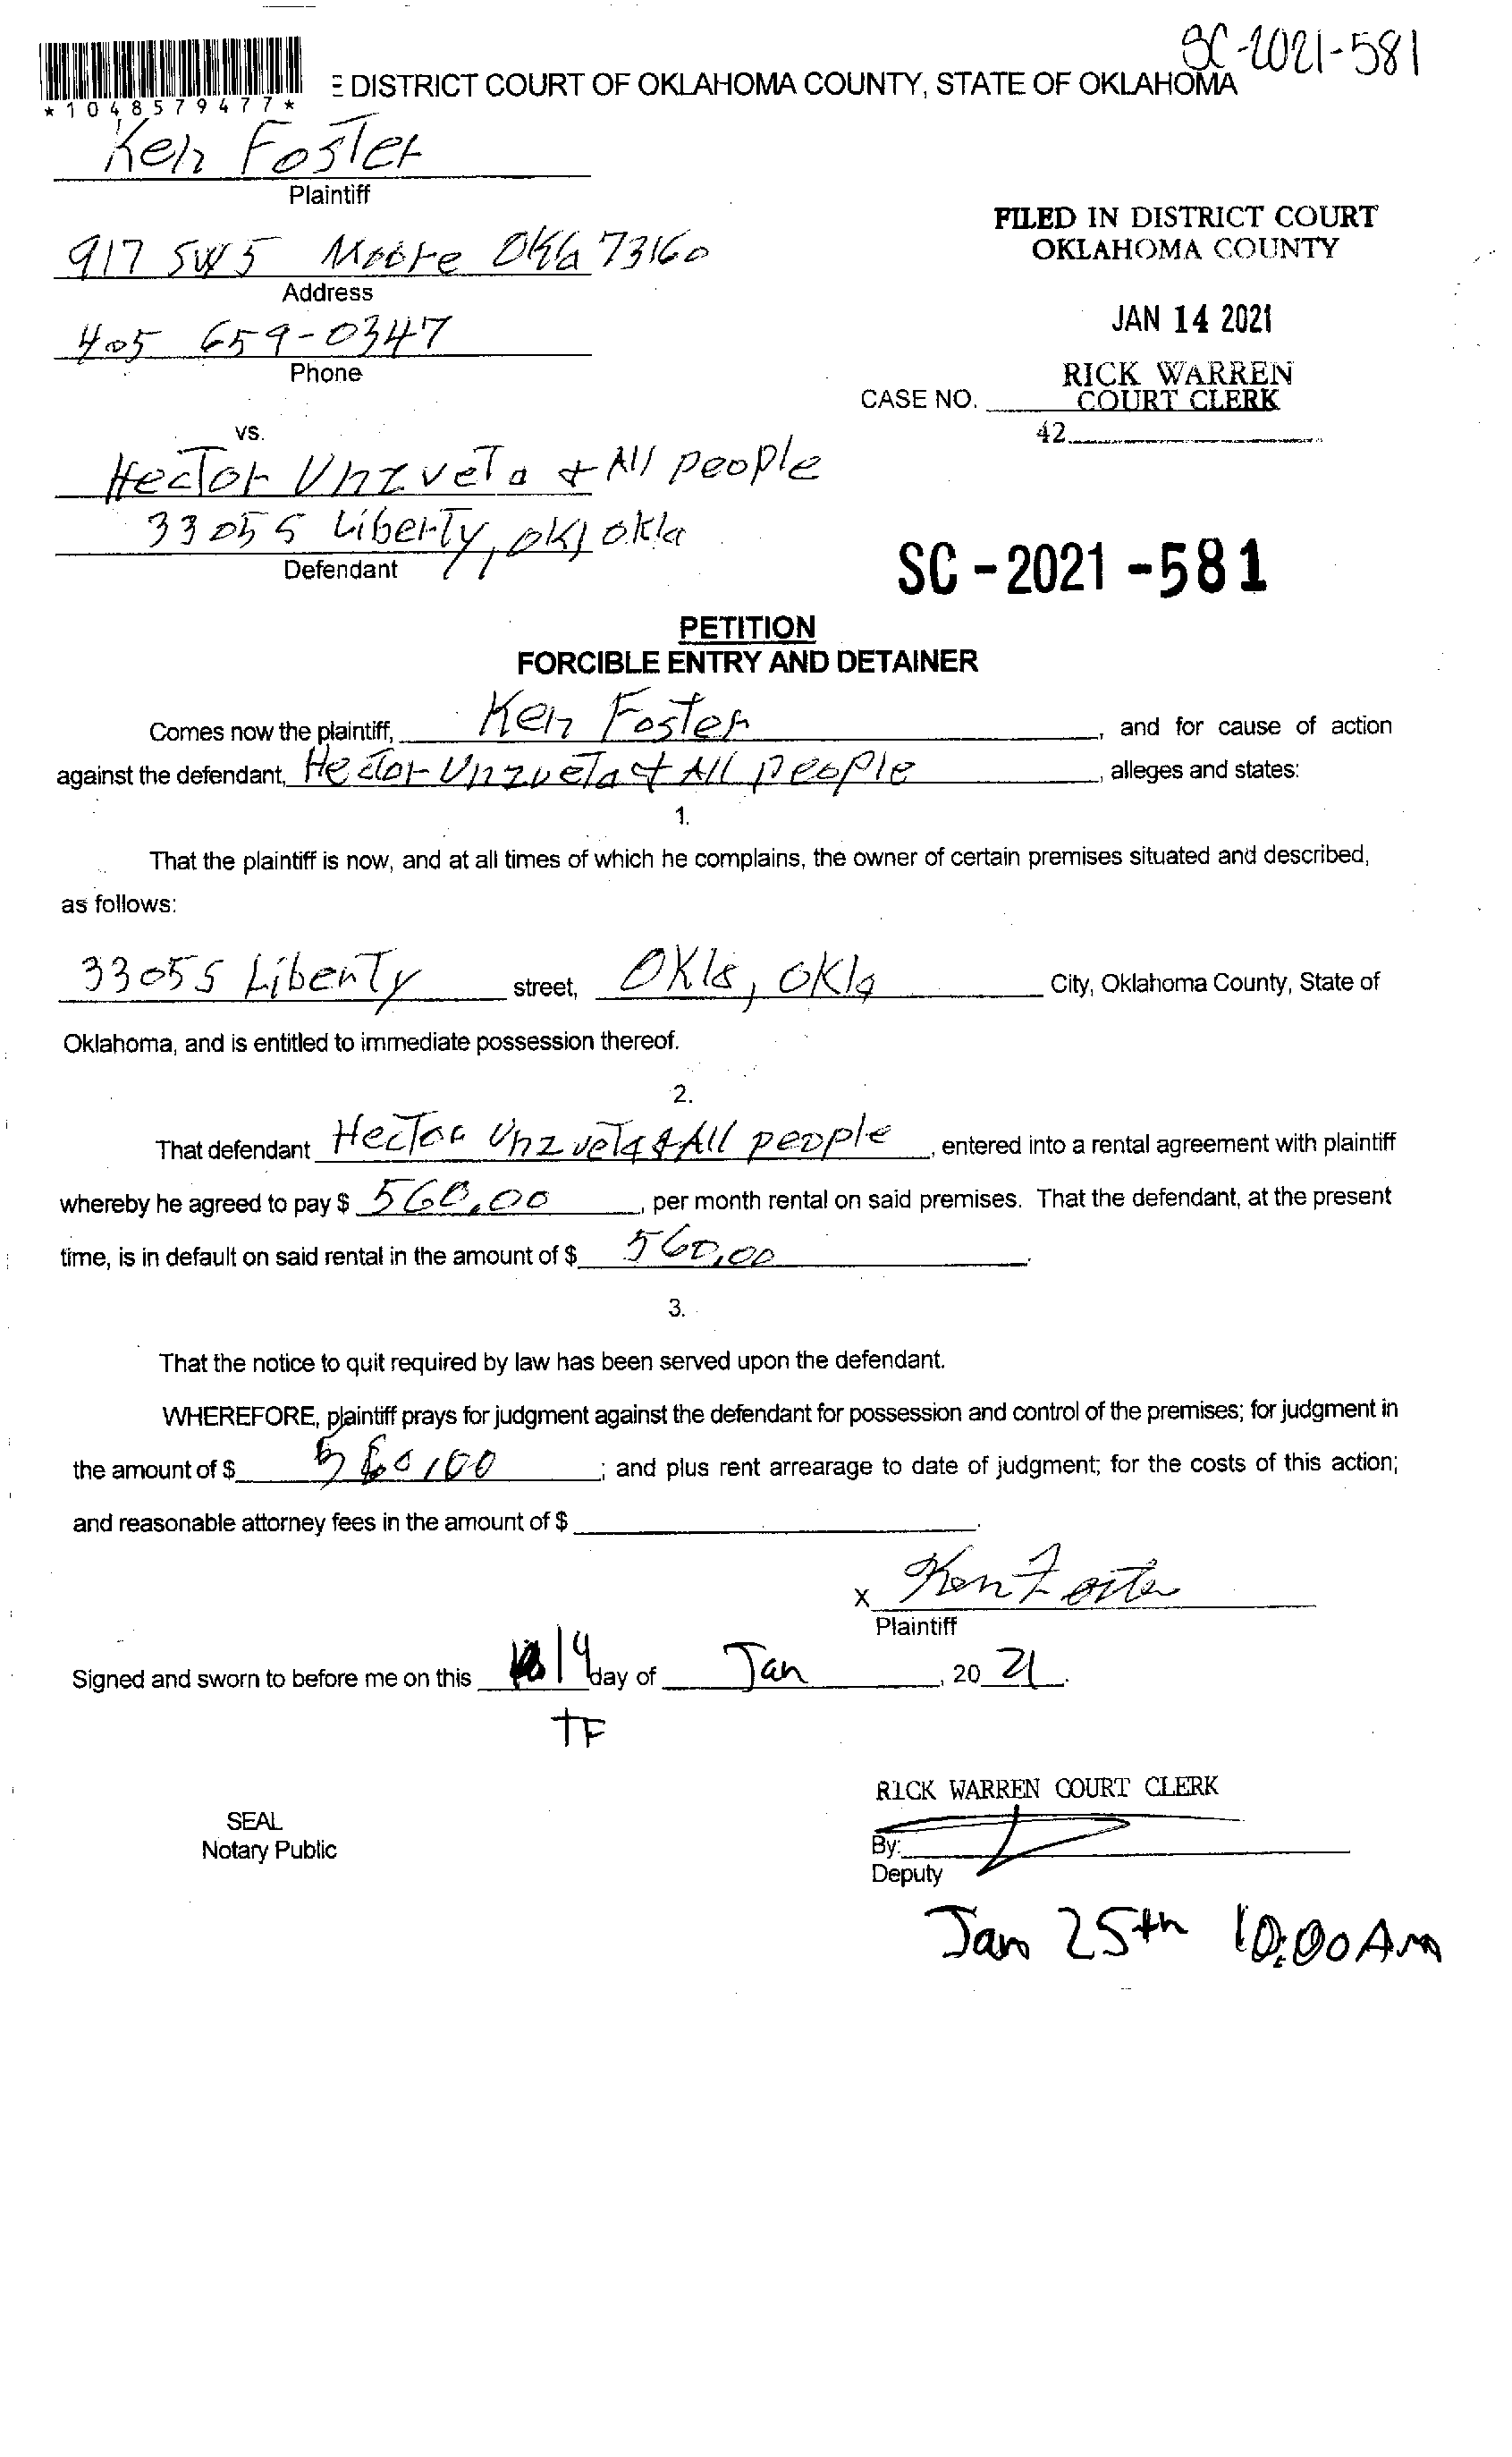 SC-2021-581
E DISTRICT COURT OF OKLAHOMA COUNTY, STATE OF OKLAHOMA
*1048579477*
Ken Foster
Plaintiff
FILED IN DISTRICT COURT
OKLAHOMA COUNTY
917 SW 5 Moore Okla 73160
Address
JAN 14 2021
405 659-0347
Phone
RICK WARREN
COURT CLERK
CASE NO.
42
vs.
Hector Unzveta & All people
3305 S Liberty, okl okla
Defendant
SC - 2021 - 581
PETITION
FORCIBLE ENTRY AND DETAINER
Comes now the plaintiff, Ken Foster, and for cause of action
against the defendant, Hector Unzueta & All people, alleges and states:
1.
That the plaintiff is now, and at all times of which he complains, the owner of certain premises situated and described,
as follows:
3305 S Liberty street, Okla, Okla City, Oklahoma County, State of
Oklahoma, and is entitled to immediate possession thereof.
2.
That defendant Hector Unzveta & All people, entered into a rental agreement with plaintiff
whereby he agreed to pay $ 560.00, per month rental on said premises. That the defendant, at the present
time, is in default on said rental in the amount of $ 560.00.
3.
That the notice to quit required by law has been served upon the defendant.
WHEREFORE, plaintiff prays for judgment against the defendant for possession and control of the premises; for judgment in
the amount of $ 560.00; and plus rent arrearage to date of judgment; for the costs of this action;
and reasonable attorney fees in the amount of $.
x Ken Foster
Plaintiff
Signed and sworn to before me on this 14 day of Jan, 20 21.
TF
RICK WARREN COURT CLERK
SEAL
Notary Public
By:
Deputy
Jan 25th 10:00 AM